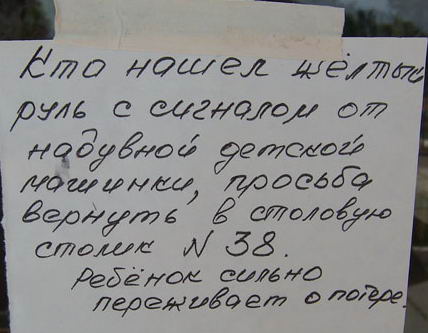 Кто нашел жёлтый
руль с сигналом от
надувной детской
машинки, просьба
вернуть в столовую
столик N 38.
Ребёнок сильно
переживает о потере.